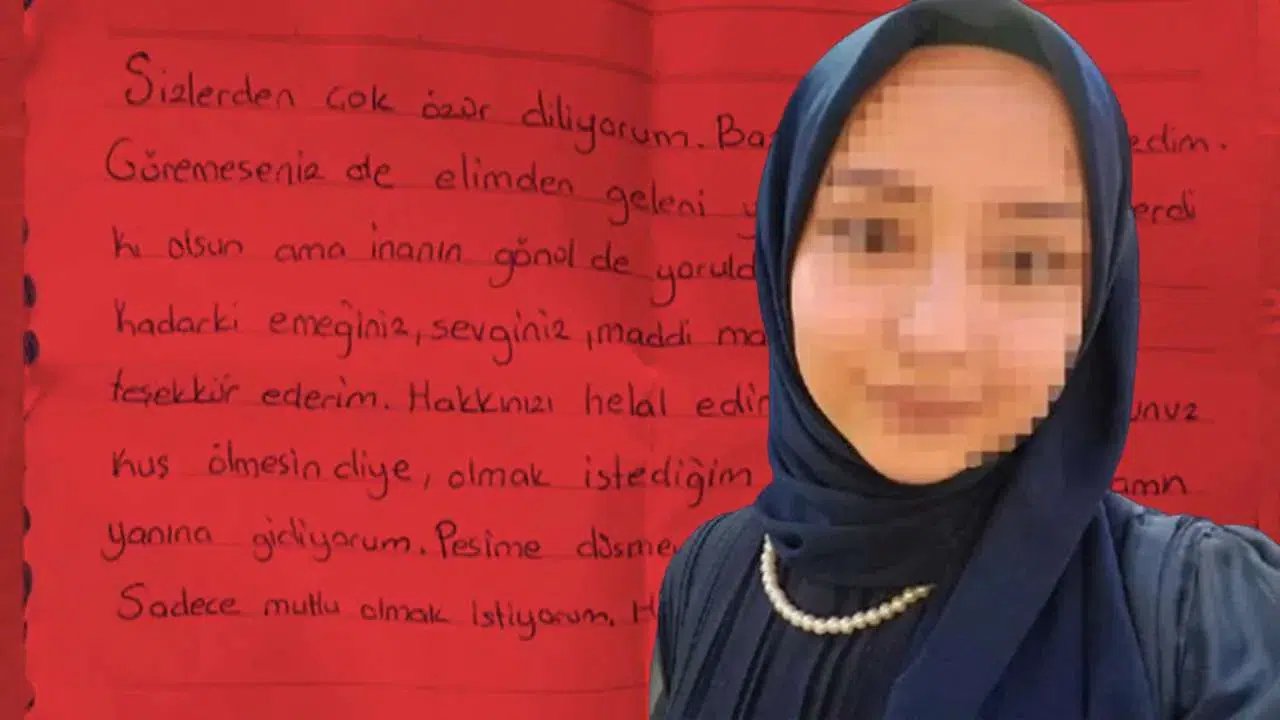 Sizlerden çok özür diliyorum. edim.
Göremeseniz de elimden geleni
ki olsun ama inanın gönül de
kadarki emeğiniz, sevginiz, maddi
teşekkür ederim. Hakkınızı helal
kuş ölmesin diye, olmak istediğim
yanına gidiyorum. Peşime
Sadece mutlu olmak istiyorum.